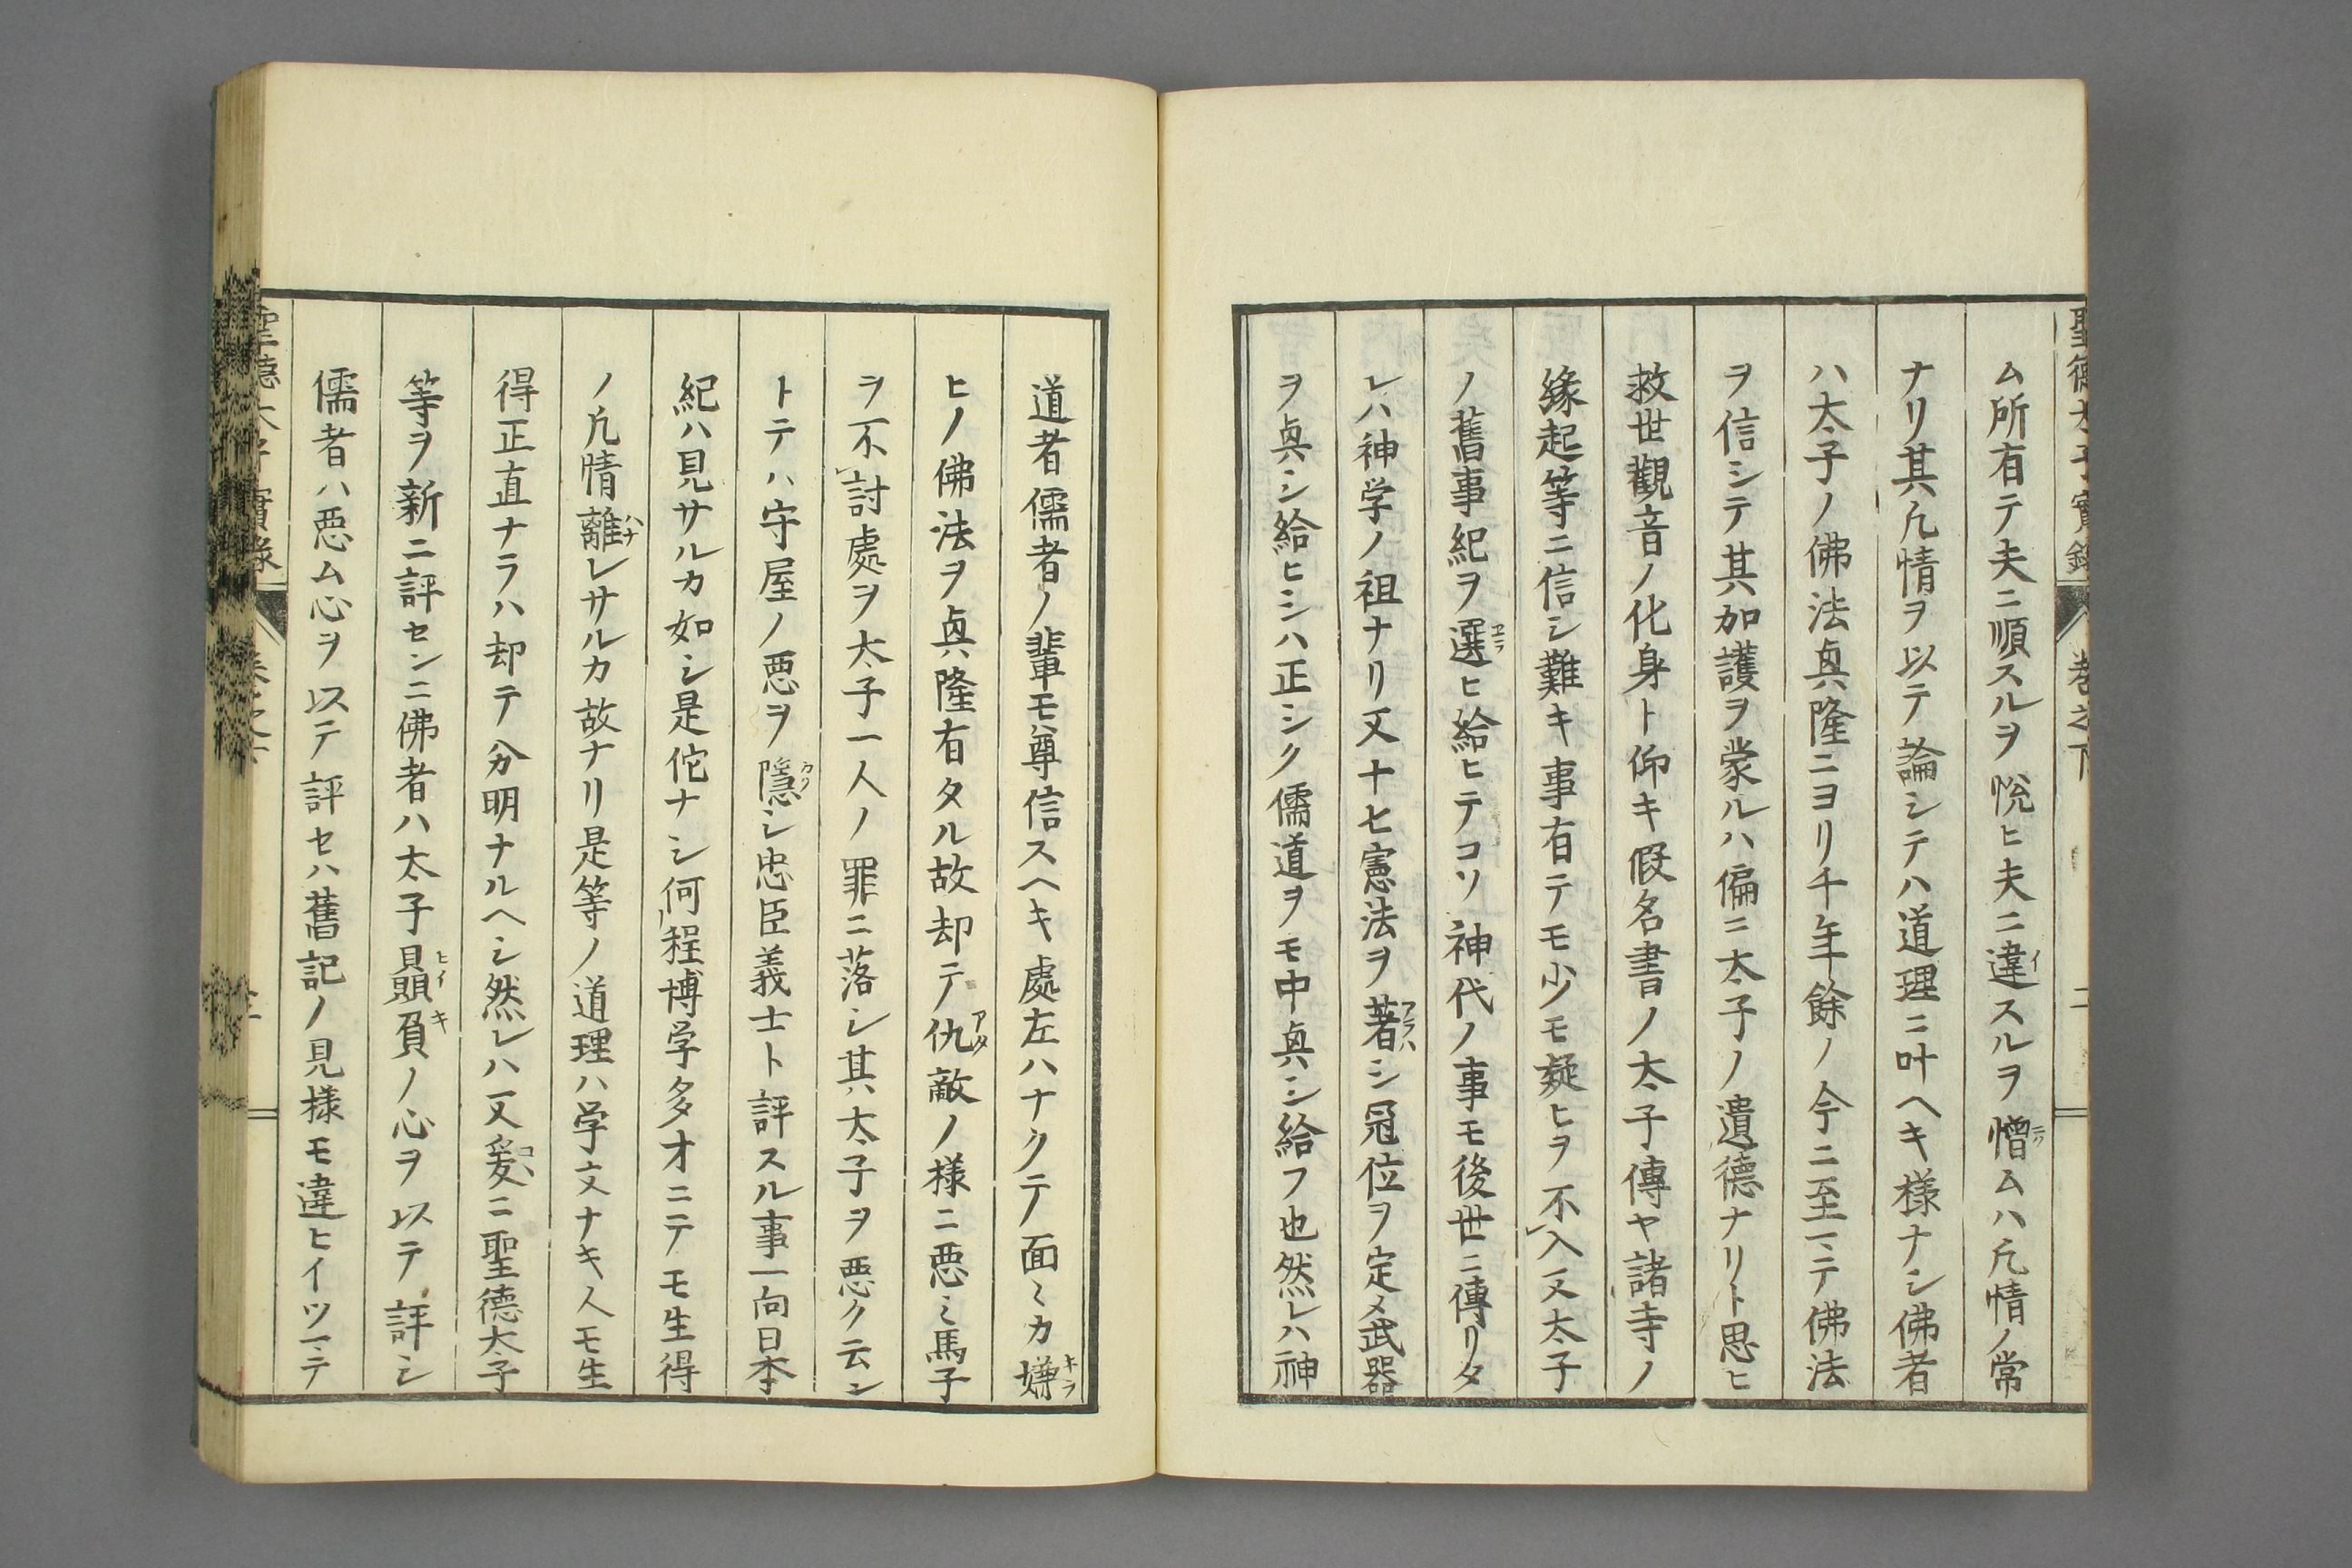 聖德太子實錄 卷之下 二
ム所有テ夫ニ順スルヲ悅ヒ夫ニ違スルヲ憎ムハ凢情ノ常
ナリ其凢情ヲ以テ論シテハ道理ニ叶ヘキ樣ナシ佛者
ハ太子ノ佛法興隆ニヨリ千年餘ノ今ニ至ニテ佛法
ヲ信シテ其加護ヲ蒙ルハ偏ニ太子ノ遺德ナリト思ヒ
救世觀音ノ化身ト仰キ假名書ノ太子傳ヤ諸寺ノ
緣起等ニ信シ難キ事有テモ少モ疑ヒヲ不入又太子
ノ舊事紀ヲ選ヒ給ヒテコソ神代ノ事モ後世ニ傳リタ
レハ神学ノ祖ナリ又十七憲法ヲ著シ冠位ヲ定メ武器
ヲ興シ給ヒシハ正シク儒道ヲモ中興シ給フ也然レハ神
道者儒者ノ輩モ尊信スヘキ處左ハナクテ面〻カ嫌
ヒノ佛法ヲ興隆有タル故却テ仇敵ノ樣ニ惡ミ馬子
ヲ不討處ヲ太子一人ノ罪ニ落シ其太子ヲ悪ク云ン
トテハ守屋ノ悪ヲ隱シ忠臣義士ト評スル事一向日本
紀ハ見サルカ如シ是佗ナシ何程博学多才ニテモ生得
ノ凢情離レサルカ故ナリ是等ノ道理ハ学文ナキ人モ生
得正直ナラハ却テ分明ナルヘシ然レハ又爰ニ聖德太子
等ヲ新ニ評センニ佛者ハ太子贔負ノ心ヲ以テ評シ
儒者ハ悪ム心ヲ以テ評セハ舊記ノ見樣モ違ヒイツニテ